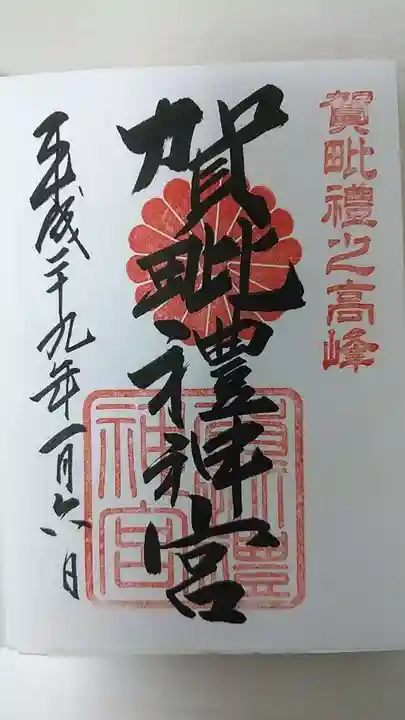 賀毗禮之高峰
賀毗禮神宮
平成二十九年一月六日
賀毗禮
神宮